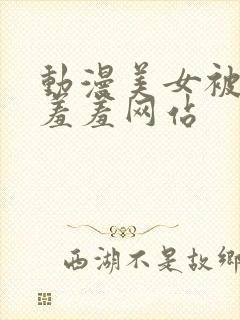 動漫美女被
羞羞网佔
西湖不是故鄉